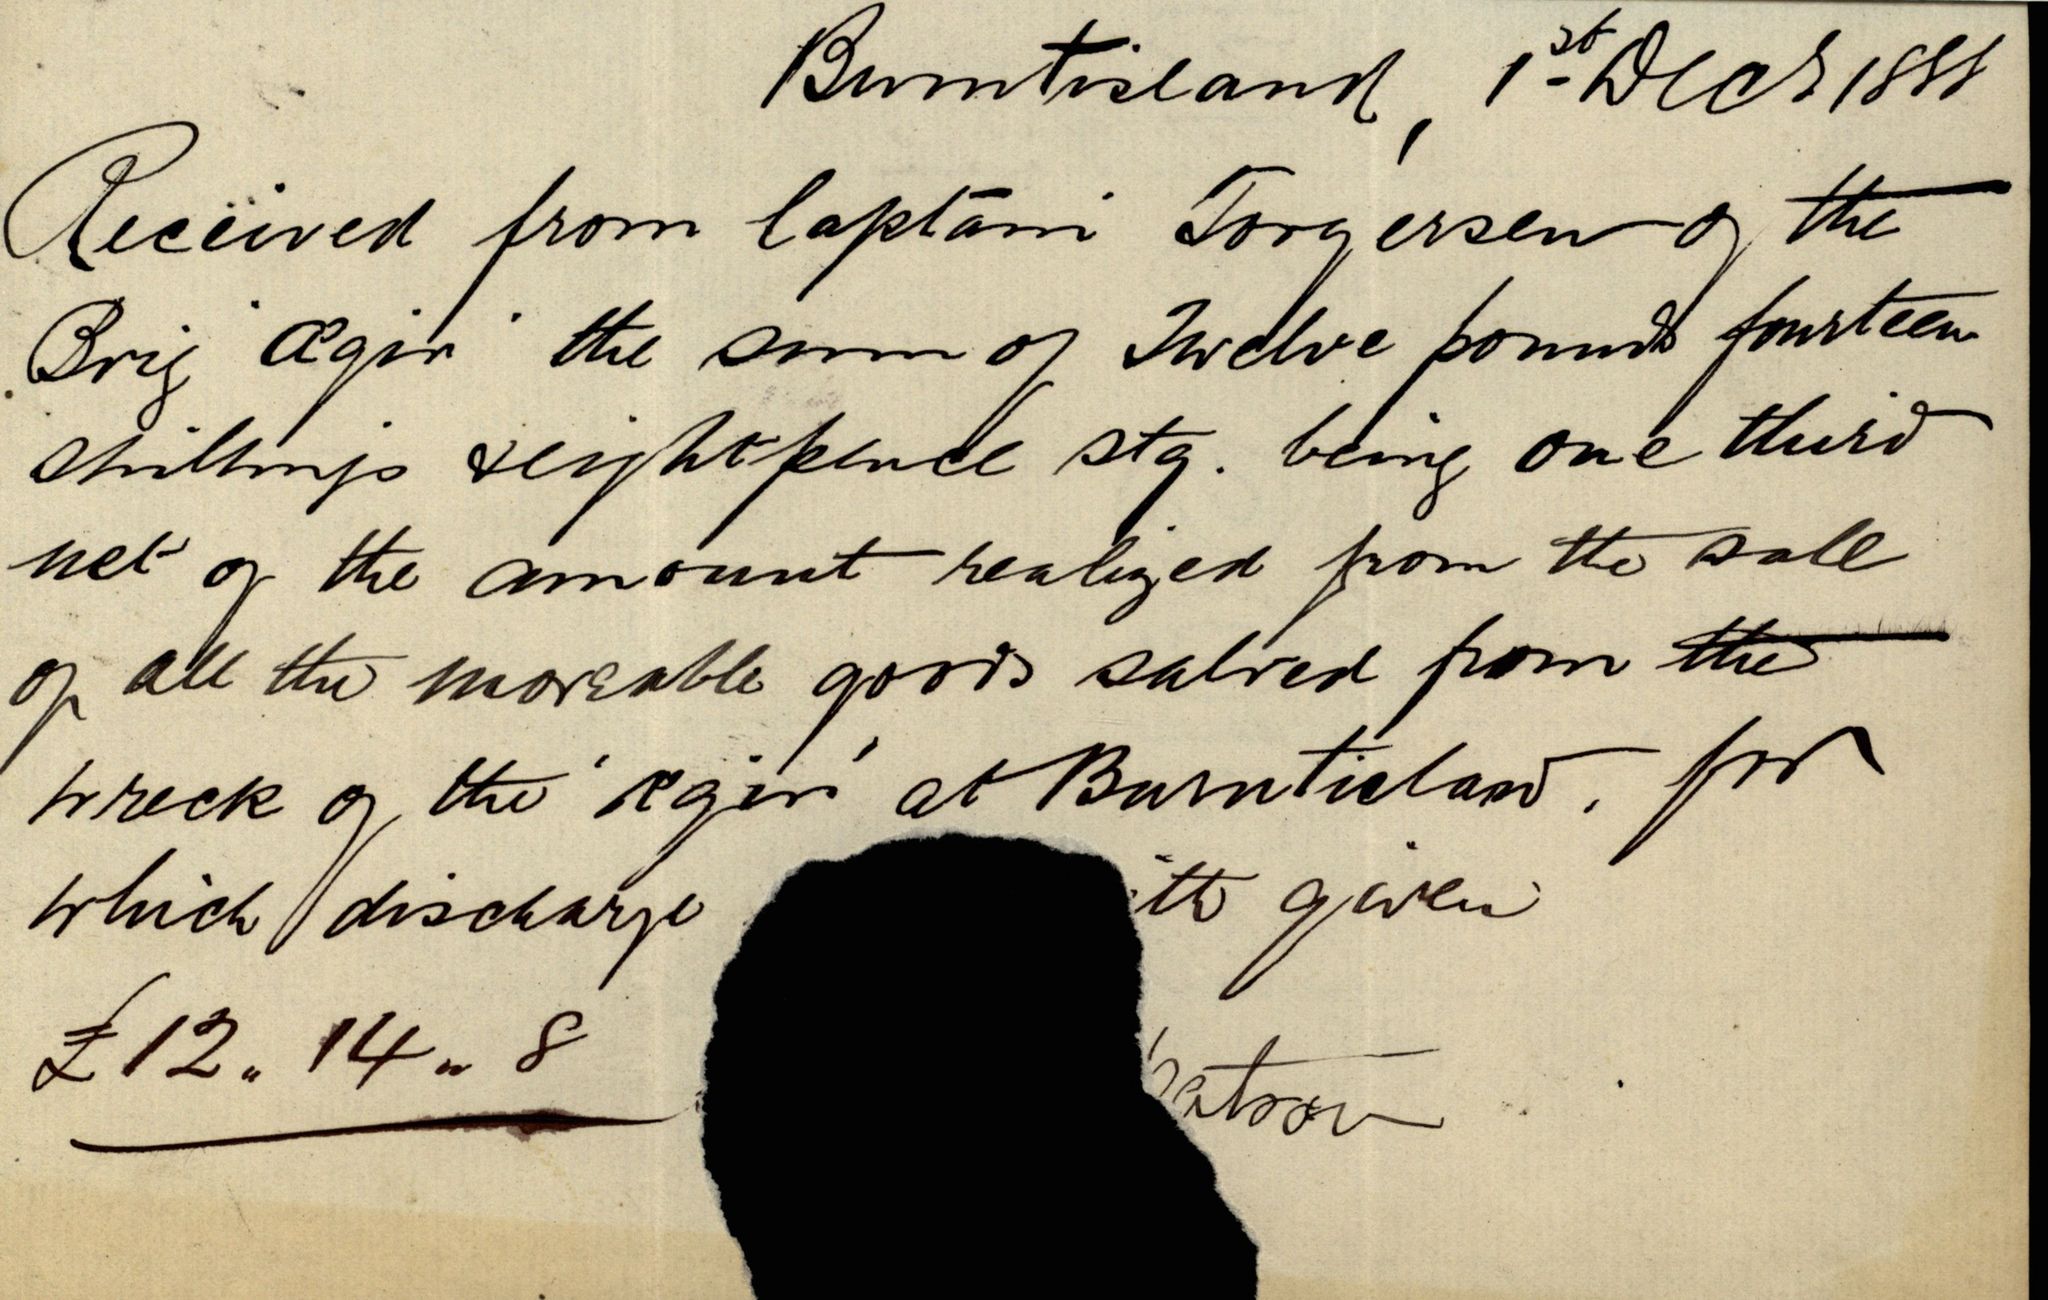 Burntisland, 1st Decr 1888
Received from Captain Torgersen of the
Brig 'Ægir' the sum of Twelve pounds fourteen
shillings & eight pence stg. being one third
net of the amount realized from the sale
of all the moveable goods salved from the
wreck of the 'Ægir' at Burntisland. for
which discharge ith given
£12 " 14 " 8
atson